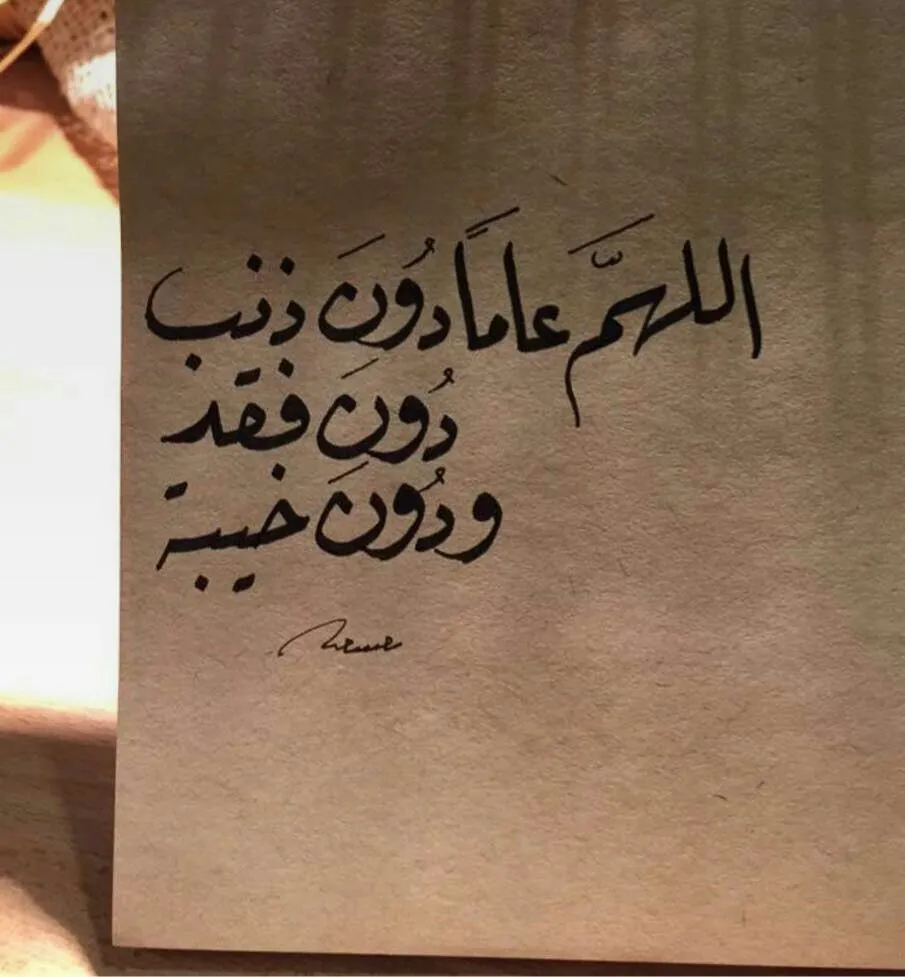 اللهمَّ عاماً دُونَ ذنب
دُونَ فقد
ودُونَ خيبة